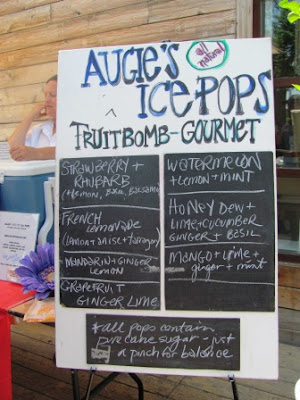 AUGIE'S
all natural
ICE POPS
FRUITBOMB-GOURMET
STRAWBERRY +
RHUBARB
(+LEMON, BASIL, BALSAMIC)
FRENCH
LEMONADE
(LEMON + ANISE + TARRAGON)
MANDARIN + GINGER
LEMON
GRAPEFRUIT
GINGER LIME
WATERMELON
+ LEMON + MINT
HONEYDEW +
LIME + CUCUMBER
GINGER + BASIL
MANGO + LIME +
ginger + mint
* all pops contain
pure cane sugar - just
a pinch for balance